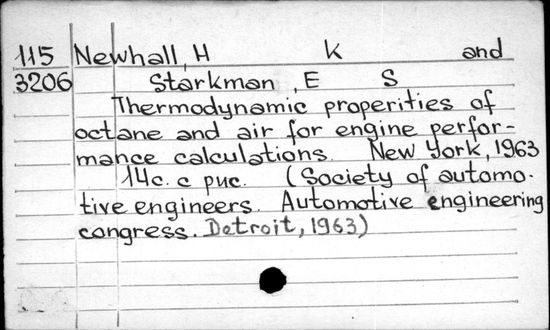 115 Newhall, H K and
3206 Starkman, E S
Thermodynamic properities of
octane and air for engine perfor-
mance calculations. New York, 1963
14c. с рис. (Society of automo-
tive engineers. Automotive engineering
congress. Detroit, 1963)